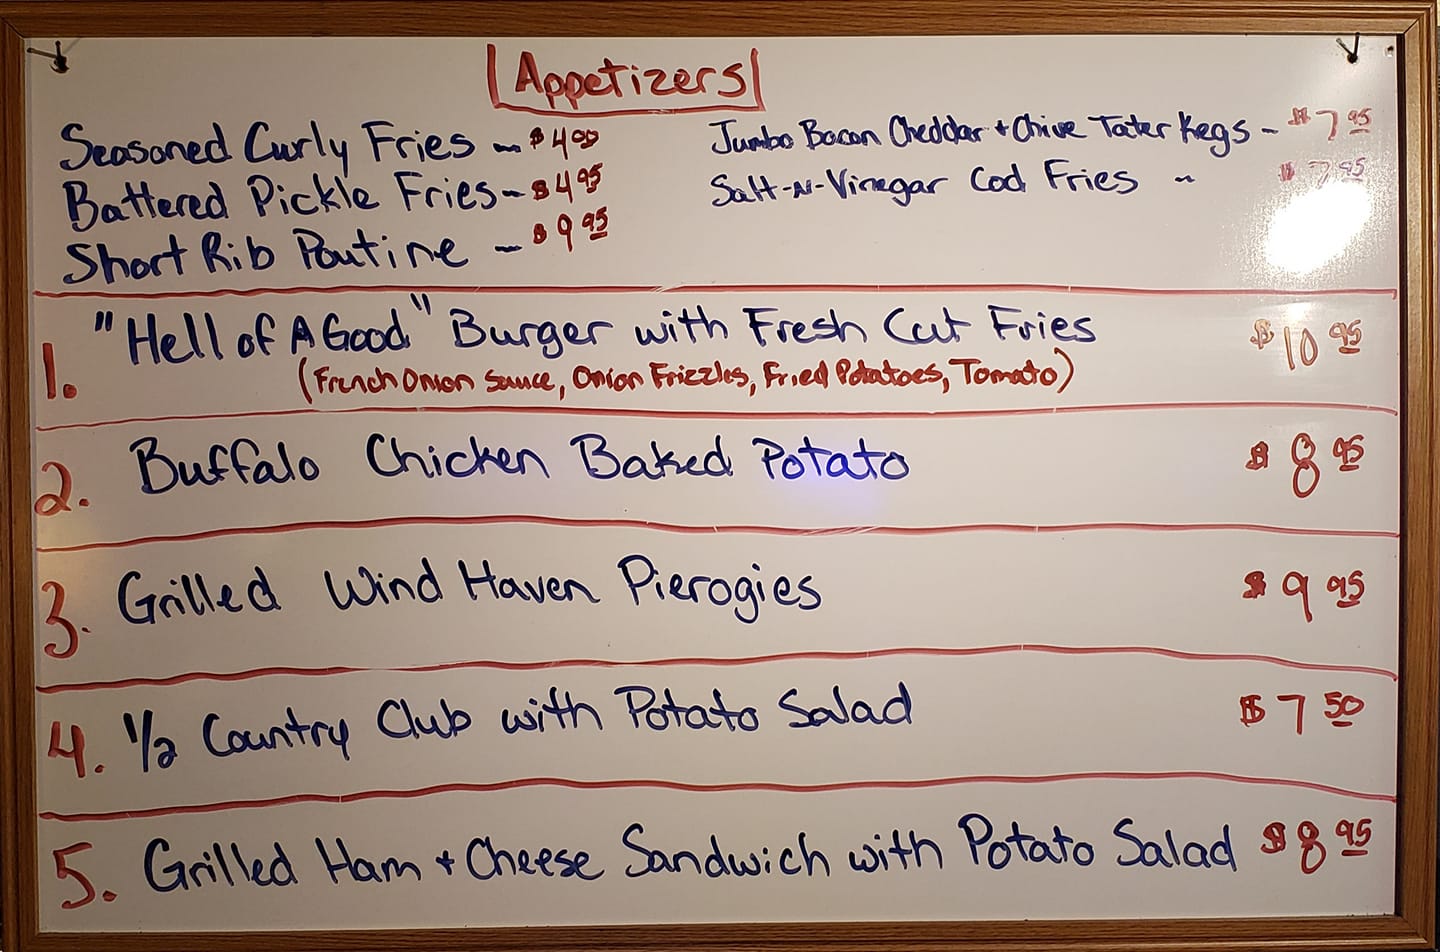 Appetizers
Seasoned Curly Fries - $4.00
Battered Pickle Fries - $4.95
Short Rib Poutine - $9.95
Jumbo Bacon Cheddar + Chive Tater Kegs - $7.95
Salt-N-Vinegar Cod Fries - $7.95
1. "Hell of A Good" Burger with Fresh Cut Fries $10.95
(French Onion Sauce, Onion Frizzles, Fried Potatoes, Tomato)
2. Buffalo Chicken Baked Potato $8.95
3. Grilled Wind Haven Pierogies $9.95
4. 1/2 Country Club with Potato Salad $7.50
5. Grilled Ham + Cheese Sandwich with Potato Salad $8.95